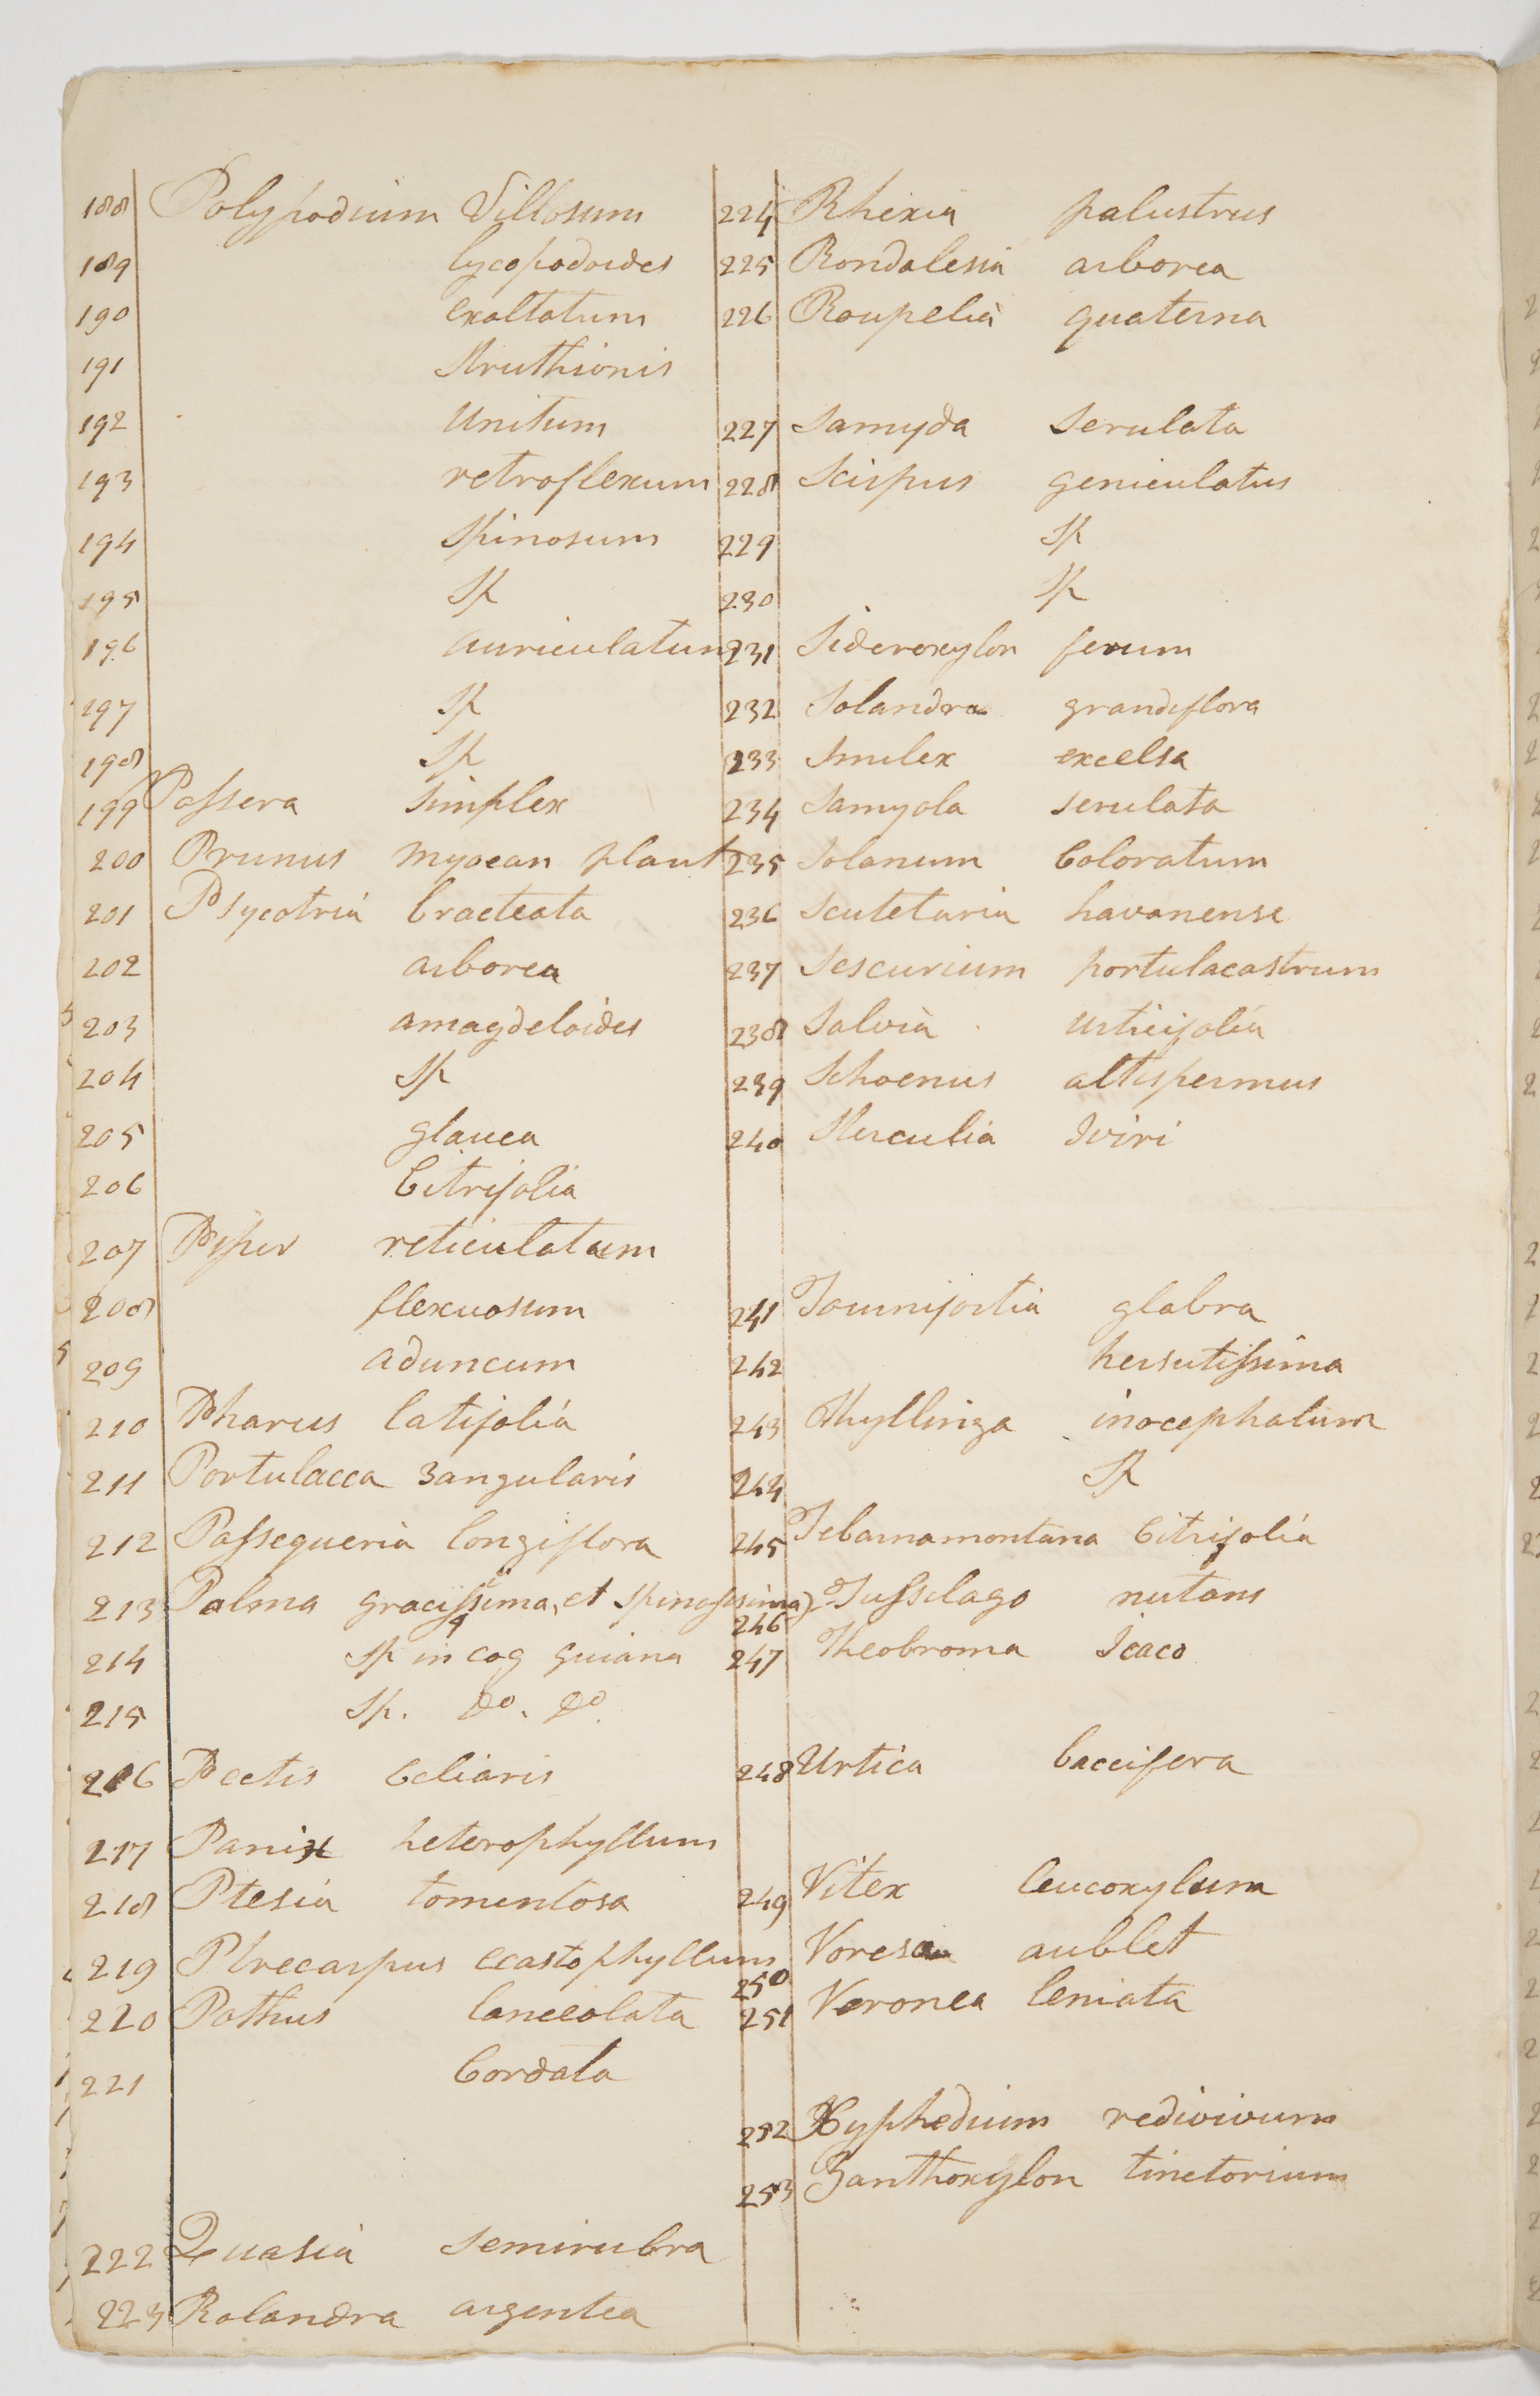 188 Polypodium Villosum
189 lycopodoides
190 exaltatum
191 Struthionis
192 Unitum
193 retroflexum
194 Spinosum
195 Sp
196 auriculatum
197 Sp
198 Sp
199 Passera Simplex
200 Prunus plant
201 Psycotria bracteata
202 arborea
203 amagdeloides
204 Sp
205 glauca
206 Citrifolia
207 Piper reticulatum
208 flexuosum
209 aduncum
210 Pharus latifolia
211 Portulacca 3angularis
212 Passequeria longiflora
213 Palma gracissima, et Spinossima)
214 Sp in cog guiana
215 Sp. Do. Do.
216 Pectis Celiaris
217 Panix heterophyllum
218 Ptesia tomentosa
219 Ptrecarpus ecastophyllum
220 Pothus lanceolata
221 Cordata
222 Quasia Semirubra
223 Rolandra argentea
224 Rhexia palustrus
225 Rondalesia arborea
226 Roupelia quaterna
227 Samyda Serulata
228 Scirpus geniculatus
229 Sp
230 Sp
231 Sideroxylon ferum
232 Solandra grandiflora
233 Smilex excelsa
234 Samyola serulata
235 Solanum Coloratum
236 Scutetaria havanense
237 Sescurium portulacastrum
238 Salvia urticifolia
239 Schoenus altispermus
240 Sterculia Iviri
241 Tournifortia glabra
242 hersutissima
243 Thyllinga inocephalum
244 Sp
245 Tebarnamontana Citrifolia
246 Tussilago nutans
247 Theobroma Icaco
248 Urtica baccifera
249 Vitex leucoxylum
250 Voresa aublet
251 Veronea leniata
252 Xyphedium redivivum
253 Zanthoxylon tinctorium